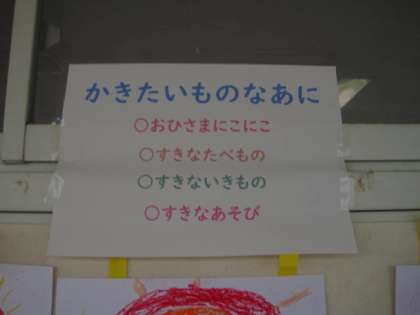 かきたいものなあに
○おひさまにこにこ
○すきなたべもの
○すきないきもの
○すきなあそび